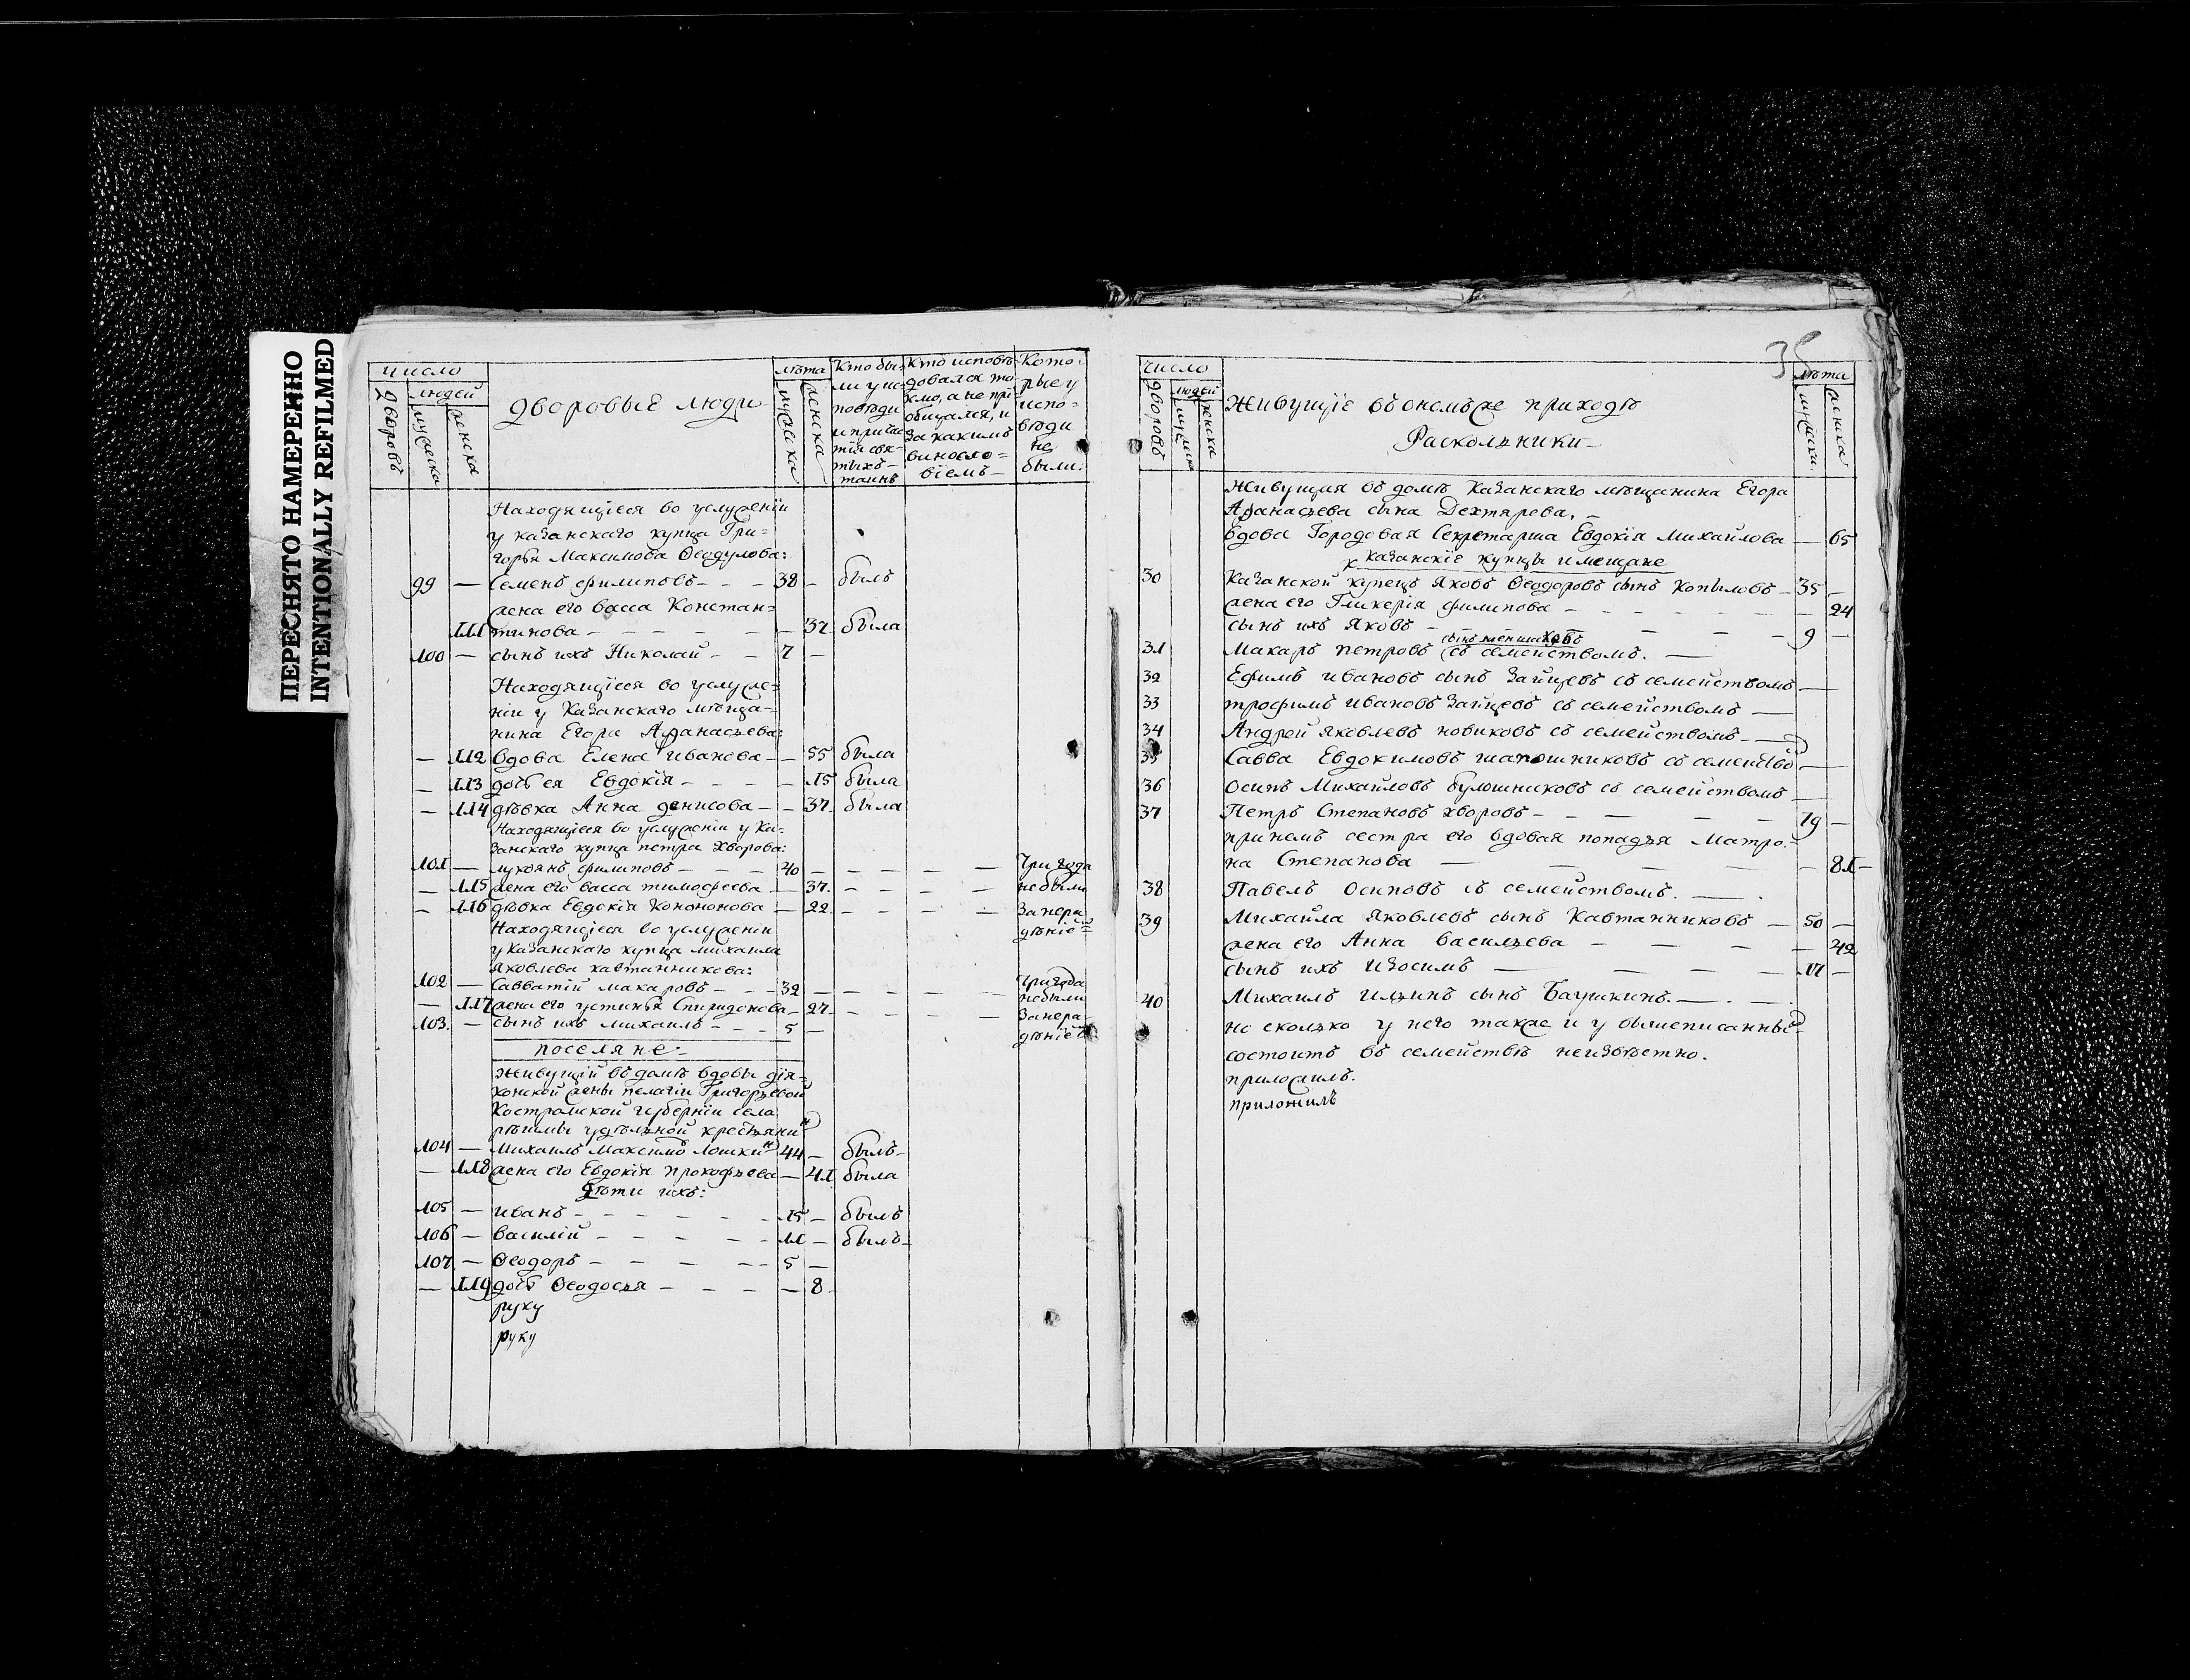 ПЕРЕСНЯТО НАМЕРЕННО
INTENTIONALLY REFILMED
число
дворовъ
людей
мужеска
женска
дворовые люди
лѣта
мужеска
женска
Кто бы-
ли у ис-
повѣди
и причас
тія свя-
тыхъ
таинъ
Кто исповѣ
довался то
кмо, а не прі
общался, и
за какимъ
винослo-
віемъ
Кото-
рые у
испо-
вѣди
не
были.
Находящіеся во услуженіи
у казанскаго купца Гри-
горья Максимова Ѳеодулова:
99 — Семенъ филиповъ - - - 38 - былъ
жена его васса Констан-
111 тинова - - - - - 37 была
100 — сынъ ихъ Николай - - 7 -
Находящіеся во услуже-
ніи у Казанскаго мѣща-
нина Егора Афанасьева:
— 112 вдова Елена Иванова - - 55 была
— 113 дочь ея Евдокія - - - - 15 была
— 114 дѣвка Анна денисова - - 37 была
Находящіеся во услуженіи у Ка-
занскаго купца петра хворова:
101 — лукоянъ филиповъ - - - 40 - - - - - Три года
— 115 жена его васса тимофеева - 37 - - - - небыли
— 116 дѣвка Евдокія Конононова - 22 - - - - Занера
дѣніе
Находящіеся во услуженіи
у Казанскаго купца михаила
Яковлева кавтанникова:
102 — Савватій макаровъ - - - 32 - - - - - Тригода
— 117 жена его устинья Спиридонова - 27 - - - - небыли
103 — сынъ ихъ михаилъ - - - 5 - Занера
дѣніе
поселяне
Живущій въ домѣ вдовы дія-
конской жены пелагіи Григорьевой
Костромской губерніи села
удѣльной крестьянинъ
104 — Михаилъ Максимовъ Лошкинъ 44 - былъ
— 118 жена его Евдокія прокофьева - 41 была
дѣти ихъ:
105 — иванъ - - - - - 15 - былъ
106 — василій - - - - - 11 - былъ
107 — Ѳеодоръ - - - - - 5 -
— 119 дочь Ѳеодосья - - - - 8
руку
руку
35
число
дворовъ
людей
мужеска
женска
Живущіе въ ономъже приходѣ
Раскольники
лѣта
мужеска
женска
Живущая въ домѣ Казанскаго мѣщанина Егора
Афанасьева сына Дехтярева.
вдова Городовая Секретарша Евдокія Михаилова — 65
Казанскіе купцы и мещане
30 Казанской купецъ Яковъ Ѳеодоровъ сынъ Копыловъ - 35 -
жена его Гликерія филипова - - - - 24
сынъ ихъ Яковъ - - - - 9 -
сынъ меншиковъ
31 Макаръ петровъ съ семействомъ. —
32 Ефимъ ивановъ сынъ Зайцевъ съ семействомъ —
33 трофимъ ивановъ Зайцевъ съ семействомъ —
34 Андрей яковлевъ новиковъ съ семействомъ —
35 Савва Евдокимовъ шапошниковъ съ семейство —
36 Осипъ Михаиловъ булошниковъ съ семействомъ —
37 Петръ Степановъ хворовъ - - - - 19 -
принемъ сестра его вдовая попадья Матро-
на Степанова — — — — 81
38 Павелъ осиповъ съ семействомъ. —
39 Михаила яковлевъ сынъ Кавтанниковъ — 50 -
жена его Анна васильева - - - - 42
сынъ ихъ изосимъ — — — 17 -
40 Михаилъ ильинъ сынъ Баушкинъ. —
но сколько у него также и у вышеписанны
состоитъ въ семействѣ неизвѣстно.
приложилъ.
приложилъ